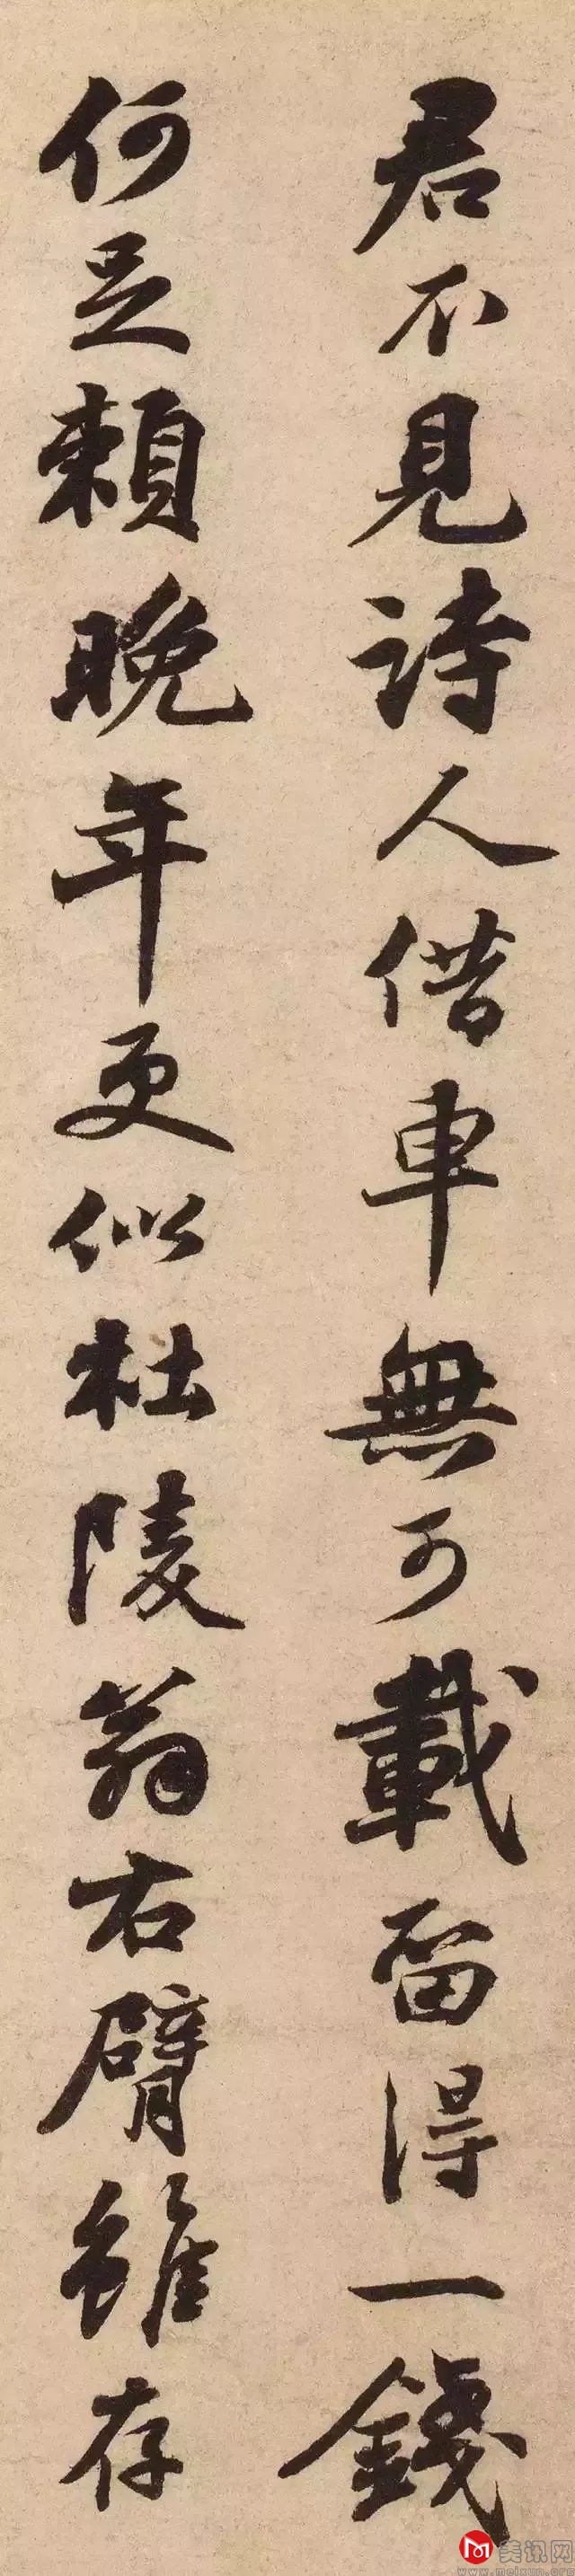 君不見詩人借車無可載留得一錢
何足賴晚年更似杜陵翁右臂雖存
美讯网
www.meixun.org